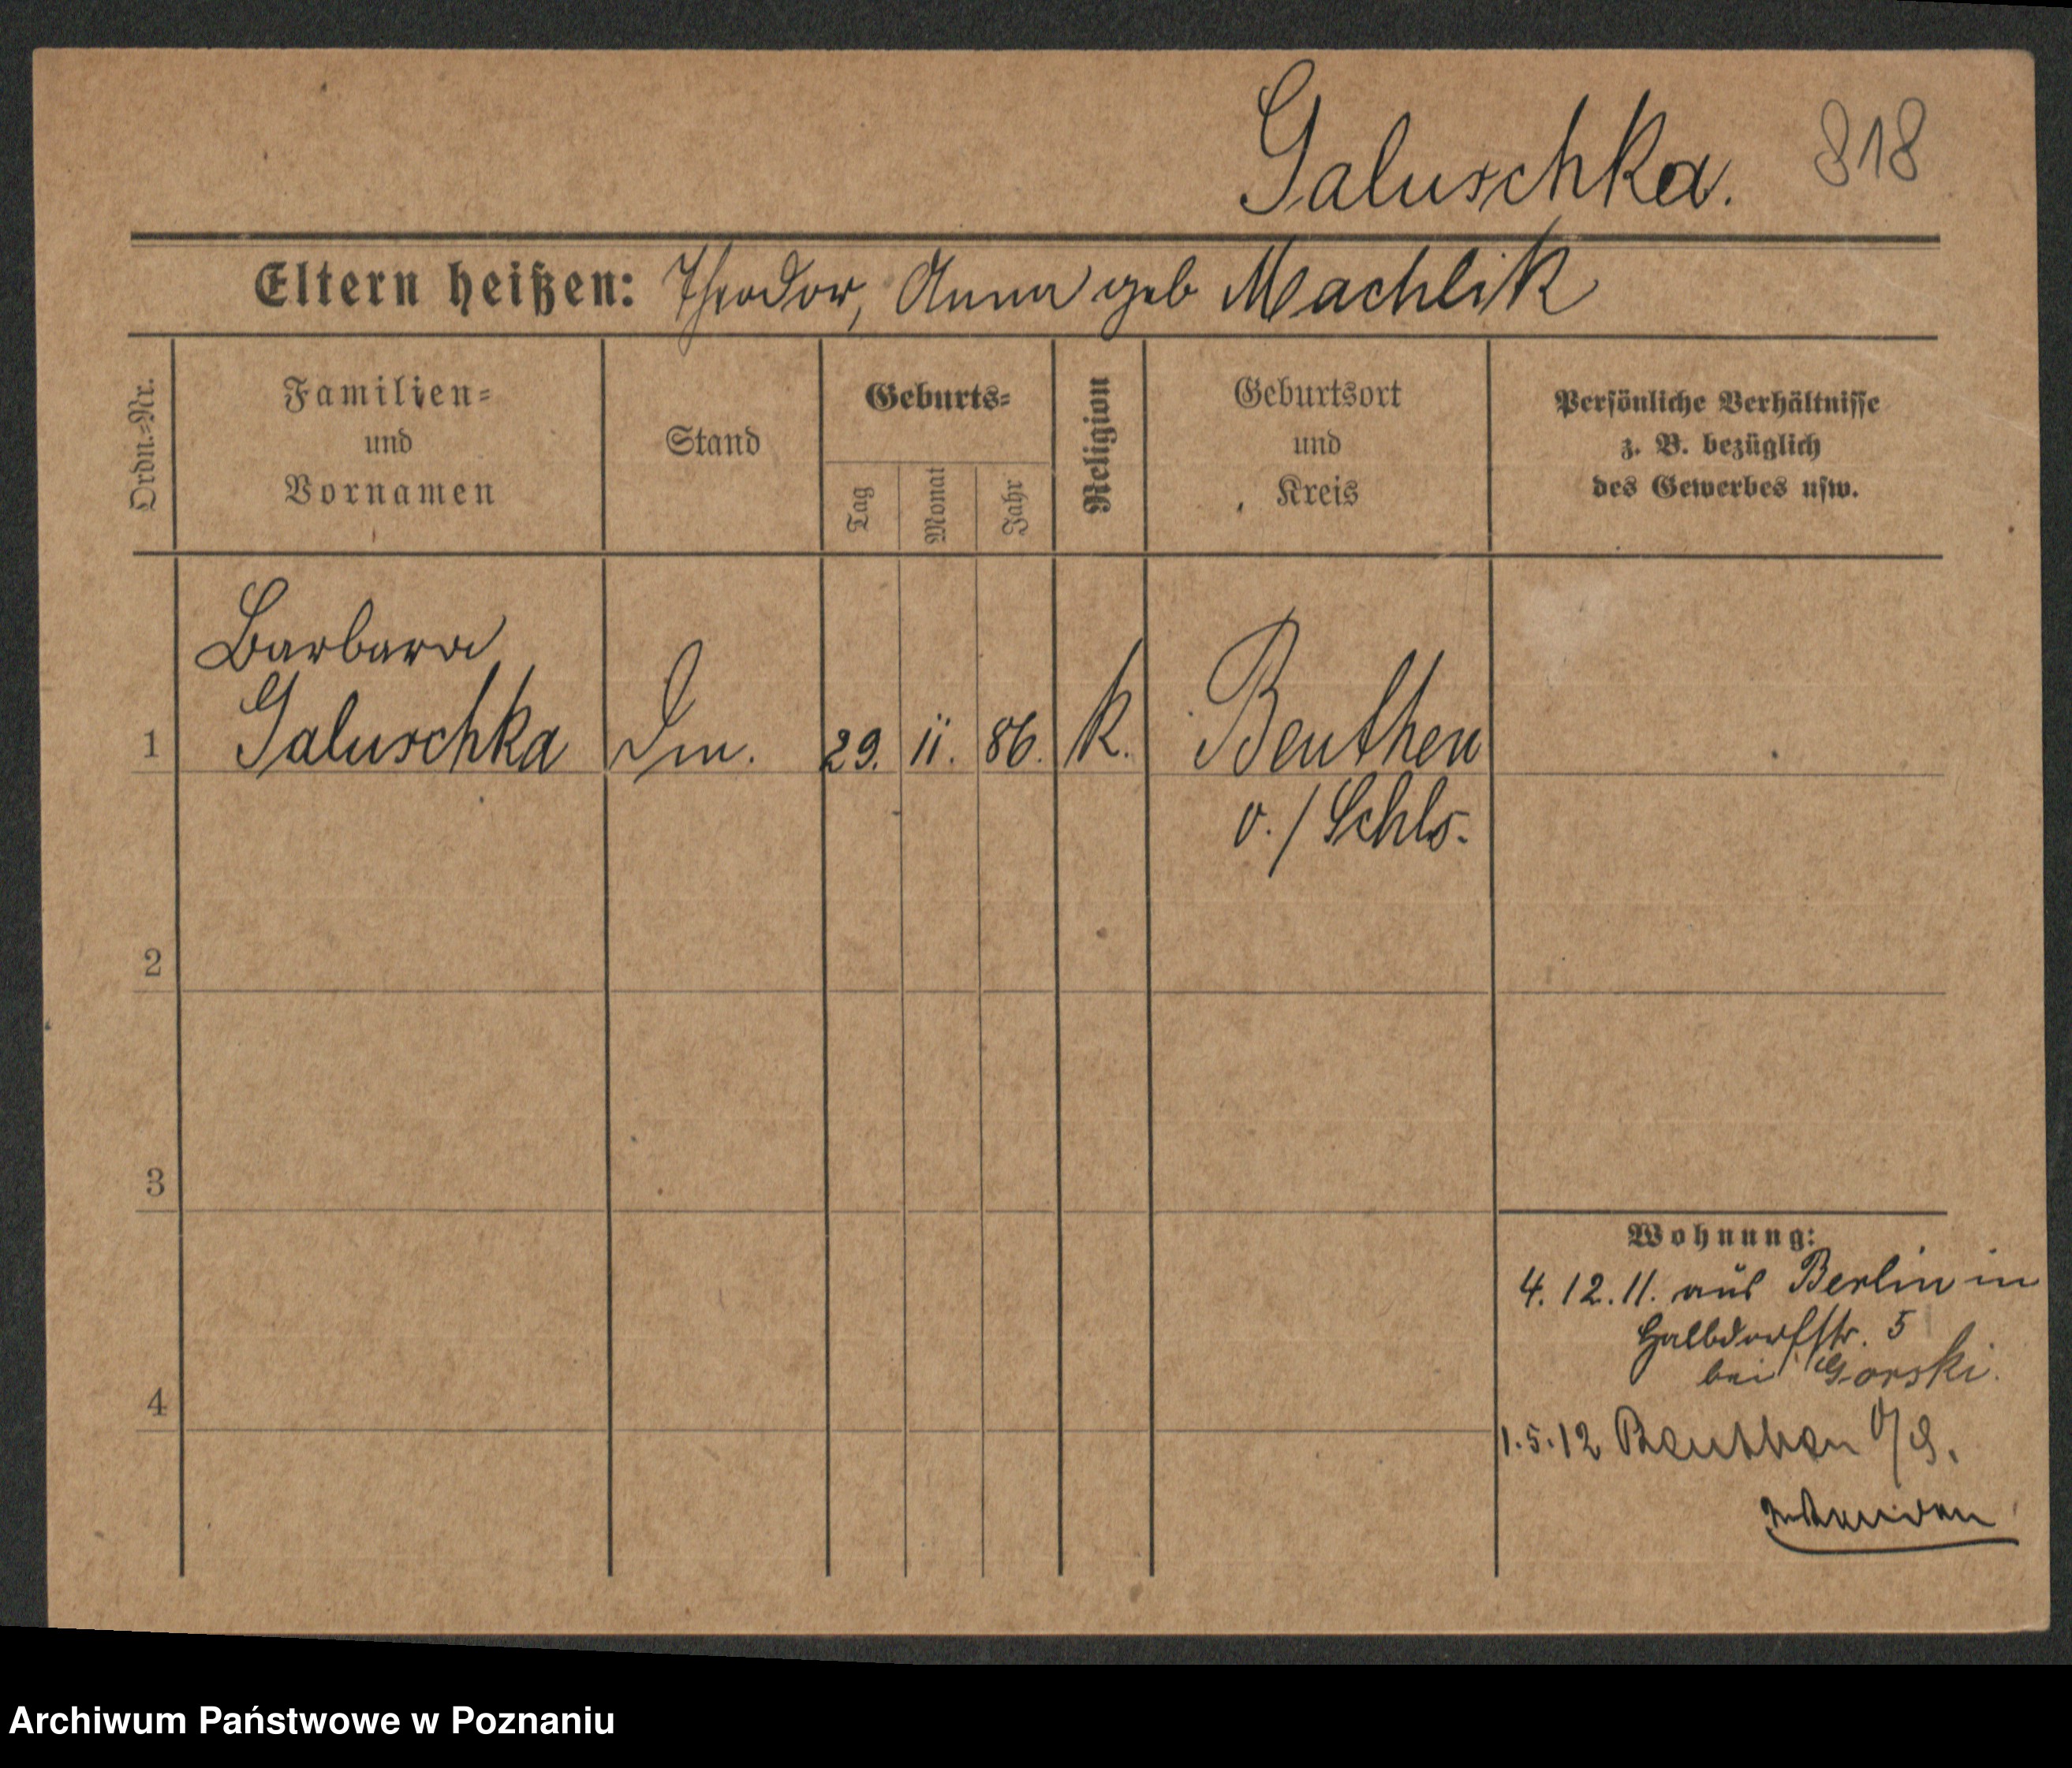 Galuschka. 818
Eltern heißen: Theodor, Anna geb Machlik
Ordn.-Nr.
Familien-
und
Vornamen
Stand
Geburts-
Tag
Monat
Jahr
Religion
Geburtsort
und
Kreis
Persönliche Verhältnisse
z. B. bezüglich
des Gewerbes usw.
Barbara
1 Galuschka 29. 11. 86. k. Beuthen
o./Schls.
2
3
Wohnung:
4. 12. 11. aus Berlin in
Halbdorfstr. 5
bei Gorski.
4
1.5.12 Beuthen O/S.
Archiwum Państwowe w Poznaniu